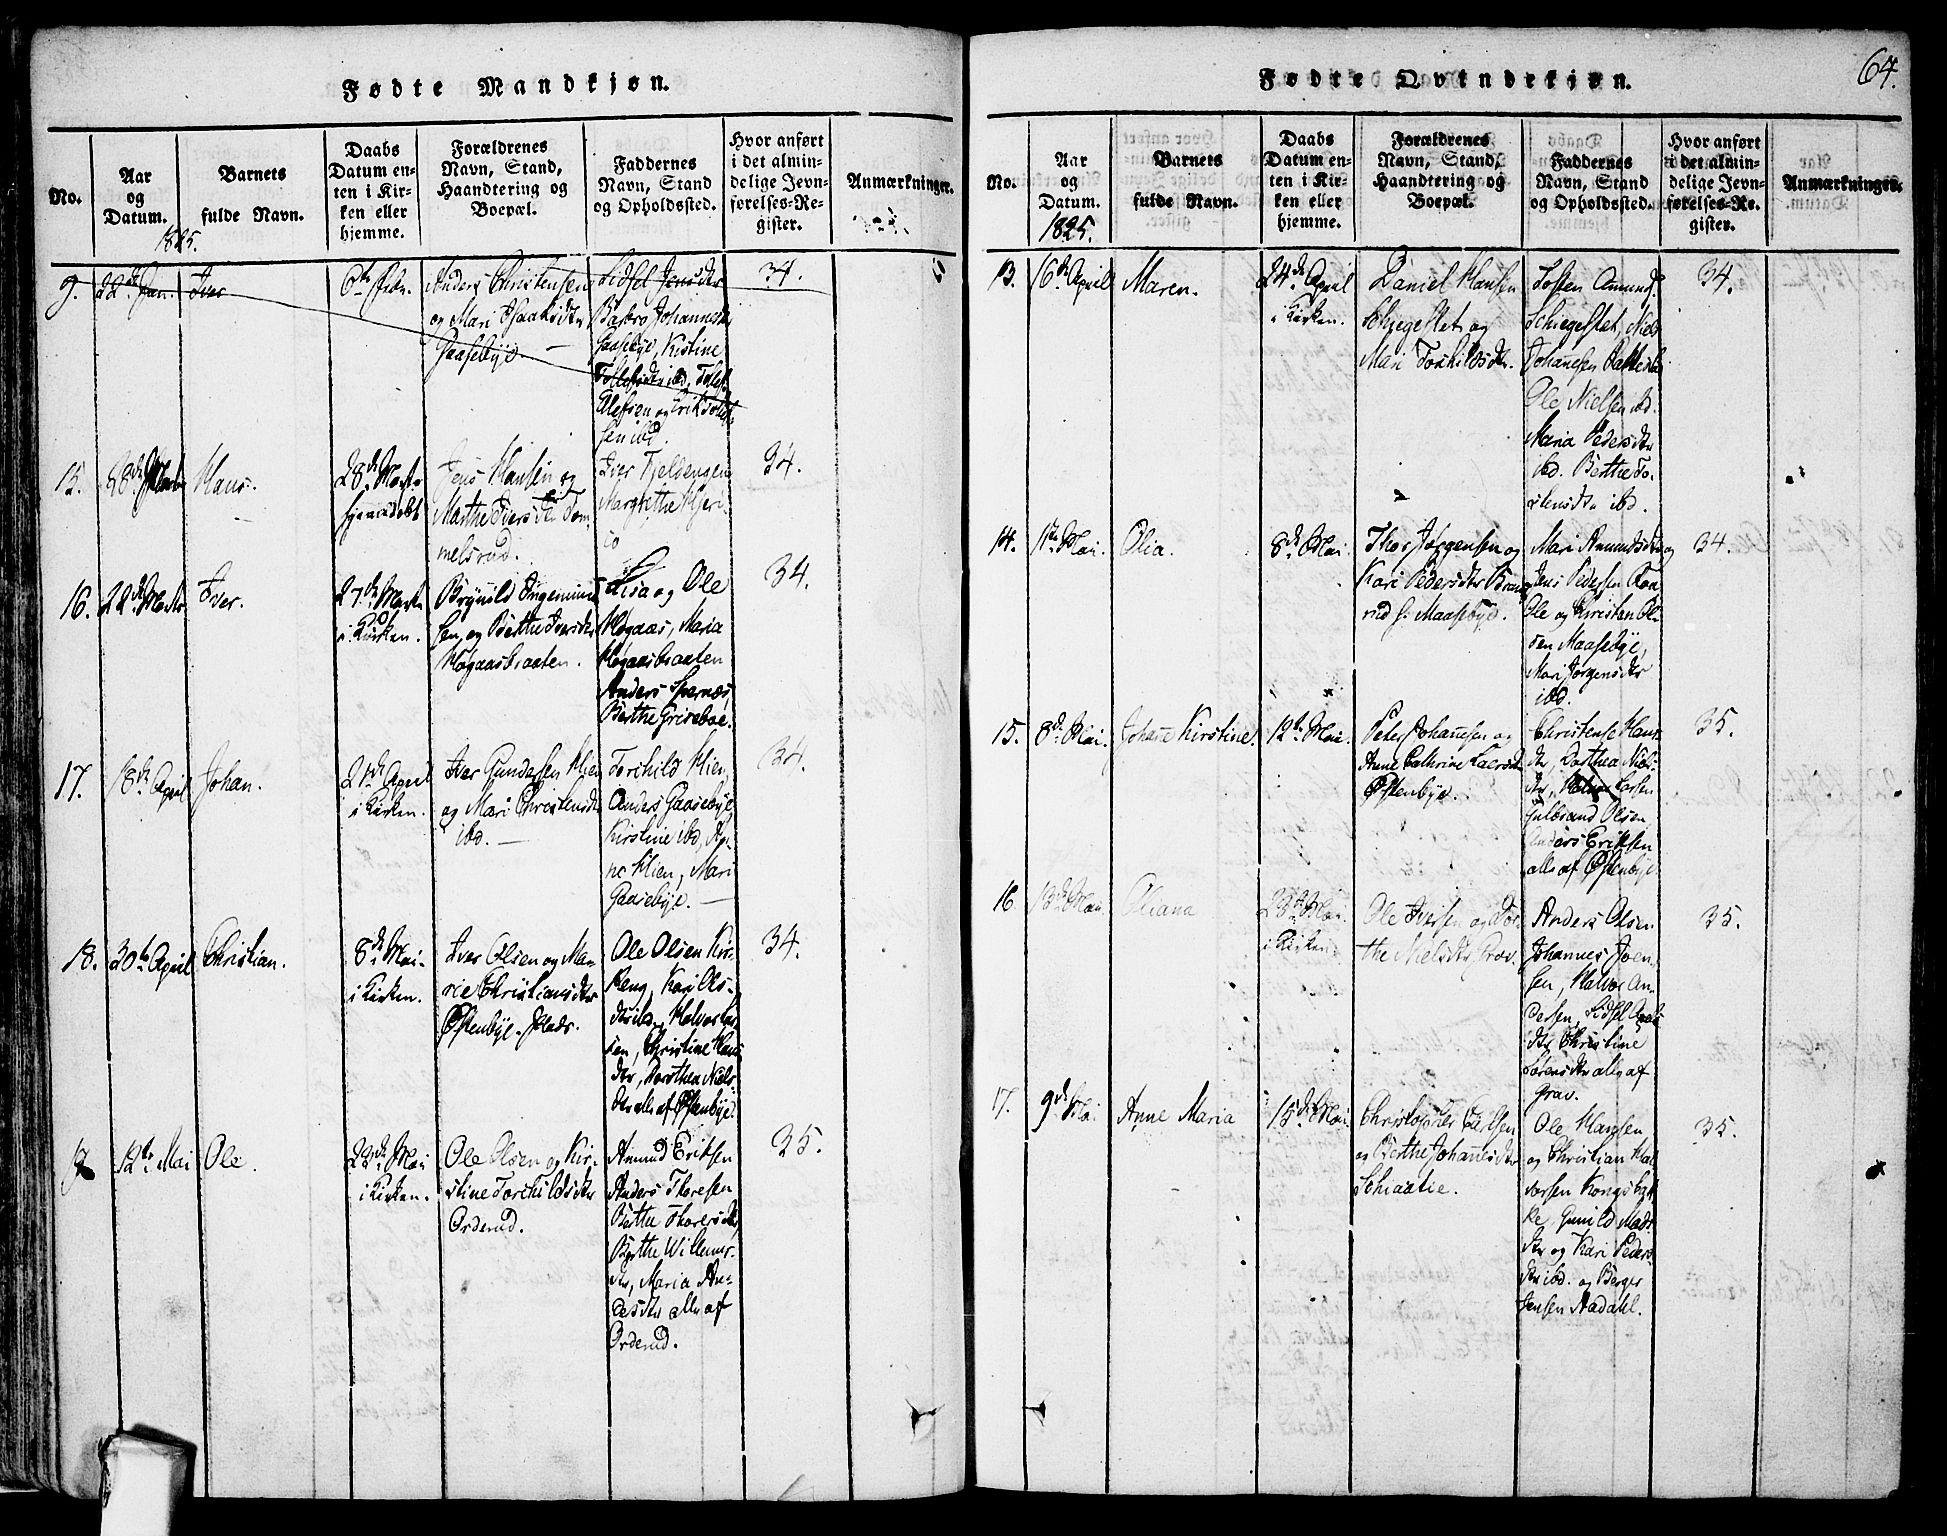 Fødte Mandkjøn.
No.
Aar og Datum.
1825.
Barnets fulde Navn.
Daabs Datum enten i Kirken eller hjemme.
Forældrenes Navn, Stand, Haandtering og Boepæl.
Faddernes Navn, Stand og Opholdssted.
Hvor anført i det almindelige Jevnførelses-Register.
Anmærkninger.
9. 22de Jan. Iver
6te Febr.
Anders Christensen
og Mari Isaaksdtr
Gaasebye.
Sidsel Jensdtr
Barbro Johannesdtr
Gaasebye, Kistine
ibd,
og Erik
sen ibd.
34.
15. Hans.
28de Marts
hjemmedøbt
Jens Hansen og
Marthe Iversdtr Tom-
melsrud.
Iver Fjeldengen
Margrethe
34.
16. 22de Marts Iver.
27de Marts
i Kirken.
Brynild
sen, og Berthe Iversdtr
Høgaasbraaten.
Lisa og Ole
Høgaas, Maria
Høgaasbraaten
Anders
Berthe
34.
17. 18de April Johan.
21de April
i Kirken.
Iver Gundersen Hlien
og Mari Christensdtr
ibd.
Torchild Hlien,
Anders Gaasebye,
Kirstine ibd, An-
ne Hlien, Mari
Gaasebye.
34.
18. 30te April Christian.
8de Mai
i Kirken.
Iver Olsen og Ma-
rie Christiansdtr
Østenbye-Plads.
Ole Olsen Kir-
keng, Kari Ols-
dtr ibd, Halvor Lar-
sen, Christine Hans
dtr, Dorthea Niels-
dtr alle af Østenbye.
34.
12te Mai Ole.
23de Mai
i Kirken.
Ole Olsen og Kir-
stine Torchildsdtr
Orderud.
Amund Eriksen
Anders Thoresen
Berthe Thoresdtr,
Berthe Willums-
dtr, Maria An-
dersdtr alle af
Orderud.
35.
Fødte Qvindekjøn.
64.
No.
Aar og Datum.
1825.
Barnets fulde Navn.
Daabs Datum enten i Kirken eller hjemme.
Forældrenes Navn, Stand, Haandtering og Boepæl.
Faddernes Navn, Stand og Opholdssted.
Hvor anført i det almindelige Jevnførelses-Register.
Anmærkninger.
13. 16de April Maren.
24de April
i Kirken.
Daniel Hansen
Schiegstet og
Mari Torkildsdtr.
Tosten Amunds.
Schiegstet, Niels
Johannesen
Ole Nielsen ibd.
Maria Pedersdtr
ibd. Berthe To-
stensdtr ibd.
34.
14. 1ste Mai. Olia.
8de Mai.
Thor Jørgensen og
Kari Pedersdtr
G. Maasebye.
Mari Amundsdtr og
Jens Pedersen
Ole og Christen Ol-
sen Maasebye,
Mari Jørgensdtr
ibd.
34.
15. 8de Mai. Johane Kirstine.
12te Mai.
Peter Johannesen og
Anne Cathrine
Østenbye.
Christense Hans
dtr, Dorthea Niels-
dtr, Halvor Larsen
Gulbrand Olsen
Anders Eriksen
alle af Østenbye.
35.
16. 13de Mai. Oliana
23de Mai.
i Kirken.
Ole Iversen og Dor-
the Nielsdtr Grav.
Anders Olsen
Johannes Joen-
sen, Halvor An-
dersen, Sidsel
dtr Christine
Sørensdtr alle af
Grav.
35.
17. 9de Mai. Anne Maria
15de Mai.
Christopher
og Berthe Johannesdtr
Ole Hansen
og Christian Hal-
vorsen
Gunild Mads
dtr og Kari Peders-
dtr ibd. og Børger
Jensen Aadahl.
35.